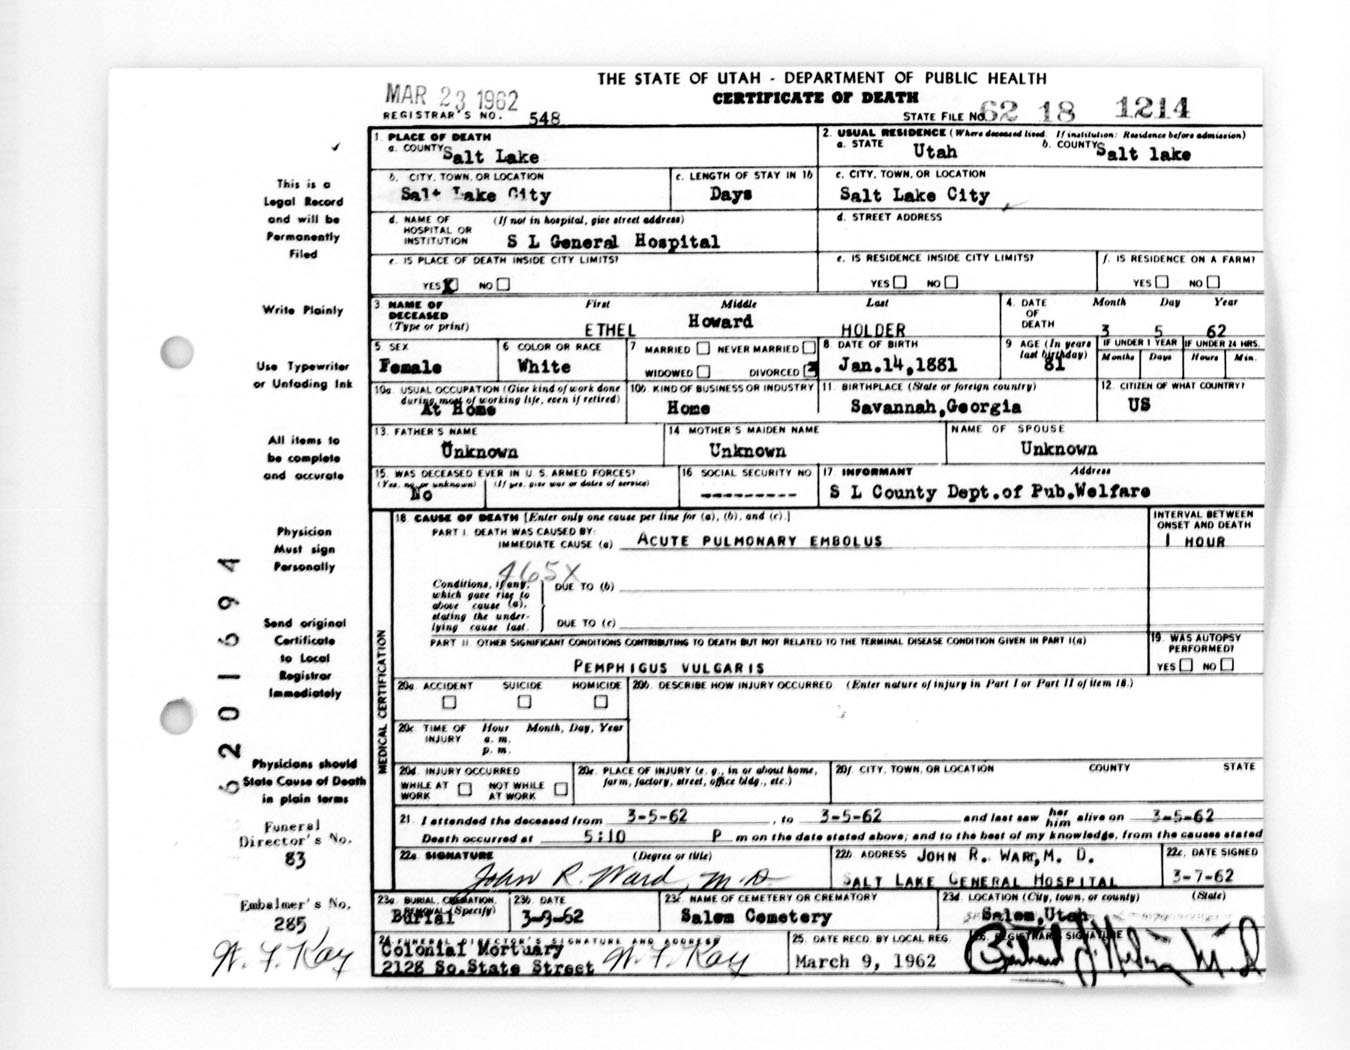 THE STATE OF UTAH - DEPARTMENT OF PUBLIC HEALTH
CERTIFICATE OF DEATH
MAR 23 1962
REGISTRAR'S NO. 548
STATE FILE NO. 62 18 1214
1. PLACE OF DEATH
a. COUNTY Salt Lake
2. USUAL RESIDENCE (Where deceased lived. If institution: Residence before admission)
a. STATE Utah b. COUNTY Salt lake
b. CITY, TOWN, OR LOCATION Salt Lake City
c. LENGTH OF STAY IN 1b Days
c. CITY, TOWN, OR LOCATION Salt Lake City
d. NAME OF HOSPITAL OR INSTITUTION (If not in hospital, give street address) S L General Hospital
d. STREET ADDRESS
e. IS PLACE OF DEATH INSIDE CITY LIMITS? YES X NO
e. IS RESIDENCE INSIDE CITY LIMITS? YES NO
f. IS RESIDENCE ON A FARM? YES NO
3. NAME OF DECEASED (Type or print) First Middle Last
ETHEL Howard HOLDER
4. DATE OF DEATH Month Day Year
3 5 62
5. SEX Female
6. COLOR OR RACE White
7. MARRIED NEVER MARRIED
WIDOWED DIVORCED X
8. DATE OF BIRTH Jan.14,1881
9. AGE (In years last birthday) 81
IF UNDER 1 YEAR Months Days
IF UNDER 24 HRS. Hours Min.
10a. USUAL OCCUPATION (Give kind of work done during most of working life, even if retired) At Home
10b. KIND OF BUSINESS OR INDUSTRY Home
11. BIRTHPLACE (State or foreign country) Savannah,Georgia
12. CITIZEN OF WHAT COUNTRY? US
13. FATHER'S NAME Unknown
14. MOTHER'S MAIDEN NAME Unknown
NAME OF SPOUSE Unknown
15. WAS DECEASED EVER IN U. S. ARMED FORCES? (Yes, no, or unknown) (If yes, give war or dates of service) No
16. SOCIAL SECURITY NO. ---------
17. INFORMANT Address
S L County Dept.of Pub.Welfare
MEDICAL CERTIFICATION
18. CAUSE OF DEATH [Enter only one cause per line for (a), (b), and (c).]
INTERVAL BETWEEN ONSET AND DEATH
PART I. DEATH WAS CAUSED BY:
IMMEDIATE CAUSE (a) ACUTE PULMONARY EMBOLUS 1 HOUR
465X
Conditions, if any, which gave rise to above cause (a), stating the underlying cause last.
DUE TO (b)
DUE TO (c)
PART II. OTHER SIGNIFICANT CONDITIONS CONTRIBUTING TO DEATH BUT NOT RELATED TO THE TERMINAL DISEASE CONDITION GIVEN IN PART I(a)
PEMPHIGUS VULGARIS
19. WAS AUTOPSY PERFORMED? YES NO
20a. ACCIDENT SUICIDE HOMICIDE
20b. DESCRIBE HOW INJURY OCCURRED. (Enter nature of injury in Part I or Part II of item 18.)
20c. TIME OF INJURY Hour Month, Day, Year
a. m.
p. m.
20d. INJURY OCCURRED
WHILE AT WORK NOT WHILE AT WORK
20e. PLACE OF INJURY (e. g., in or about home, farm, factory, street, office bldg., etc.)
20f. CITY, TOWN, OR LOCATION COUNTY STATE
21. I attended the deceased from 3-5-62, to 3-5-62 and last saw her him alive on 3-5-62
Death occurred at 5:10 P m on the date stated above; and to the best of my knowledge, from the causes stated
22a. SIGNATURE (Degree or title)
John R. Ward, M.D.
22b. ADDRESS JOHN R. WARD, M. D.
SALT LAKE GENERAL HOSPITAL
22c. DATE SIGNED 3-7-62
23a. BURIAL, CREMATION, REMOVAL (Specify) Burial
23b. DATE 3-9-62
23c. NAME OF CEMETERY OR CREMATORY Salem Cemetery
23d. LOCATION (City, town, or county) (State)
Salem,Utah
24. FUNERAL DIRECTOR'S SIGNATURE AND ADDRESS
Colonial Mortuary
2128 So.State Street W. F. Kay
25. DATE RECD. BY LOCAL REG.
March 9, 1962
26. REGISTRAR'S SIGNATURE
This is a
Legal Record
and will be
Permanently
Filed
Write Plainly
Use Typewriter
or Unfading Ink
All items to
be complete
and accurate
Physician
Must sign
Personally
Send original
Certificate
to Local
Registrar
Immediately
Physicians should
State Cause of Death
in plain terms
Funeral
Director's No.
83
Embalmer's No.
285
W. F. Kay
6201694